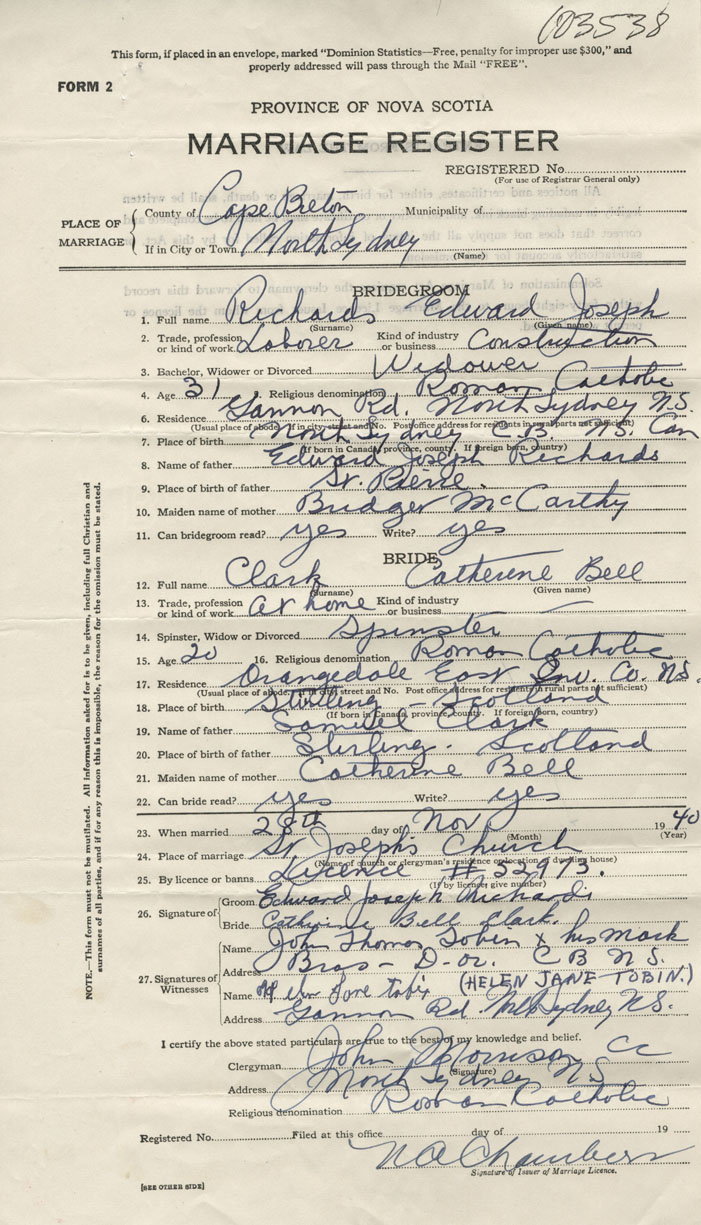 103538
This form, if placed in an envelope, marked "Dominion Statistics—Free, penalty for improper use $300," and
properly addressed will pass through the Mail "FREE".
FORM 2
PROVINCE OF NOVA SCOTIA
MARRIAGE REGISTER
REGISTERED No.
(For use of Registrar General only)
PLACE OF MARRIAGE
County of Cape Breton Municipality of
If in City or Town North Sydney
(Name)
BRIDEGROOM
1. Full name Richards Edward Joseph
(Surname) (Given name)
2. Trade, profession or kind of work Laborer Kind of industry or business Construction
3. Bachelor, Widower or Divorced Widower
4. Age 31 Religious denomination Roman Catholic
6. Residence Gannon Rd. North Sydney N.S.
(Usual place of abode. If in city street and No. Post office address for residents in rural parts not sufficient)
7. Place of birth North Sydney C.B. N.S. Can
(If born in Canada, province, county. If foreign born, country)
8. Name of father Edward Joseph Richards
9. Place of birth of father St. Pierre
10. Maiden name of mother McCarthy
11. Can bridegroom read? yes Write? yes
BRIDE
12. Full name Clark Catherine Bell
(Surname) (Given name)
13. Trade, profession or kind of work at home Kind of industry or business —
14. Spinster, Widow or Divorced Spinster
15. Age 20 16. Religious denomination Roman Catholic
17. Residence Orangedale East Inv. Co. N.S.
(Usual place of abode. If in city street and No. Post office address for residents in rural parts not sufficient)
18. Place of birth Stirling - Scotland
(If born in Canada, province, county. If foreign born, country)
19. Name of father Samuel Clark
20. Place of birth of father Stirling. Scotland
21. Maiden name of mother Catherine Bell
22. Can bride read? yes Write? yes
23. When married 28th day of Nov 1940
(Month) (Year)
24. Place of marriage St Joseph's Church
(Name of church or clergyman's residence or location of dwelling house)
25. By licence or banns Licence # 32973.
(If by licence, give number)
26. Signature of
Groom Edward Joseph Richards
Bride Catherine Bell Clark.
27. Signatures of Witnesses
Name John Thomas Tobin x his mark
Address Bras-D-or. C B N S.
Name (HELEN JANE TOBIN.)
Address Gannon Rd. Nth Sydney N.S.
I certify the above stated particulars are true to the best of my knowledge and belief.
Clergyman John Morrison CC
(Signature)
Address North Sydney N S
Religious denomination Roman Catholic
Registered No. Filed at this office day of 19
N A Chambers
Signature of Issuer of Marriage Licence.
[SEE OTHER SIDE]
NOTE.—This form must not be mutilated. All information asked for is to be given, including full Christian and
surnames of all parties, and if for any reason this is impossible, the reason for the omission must be stated.